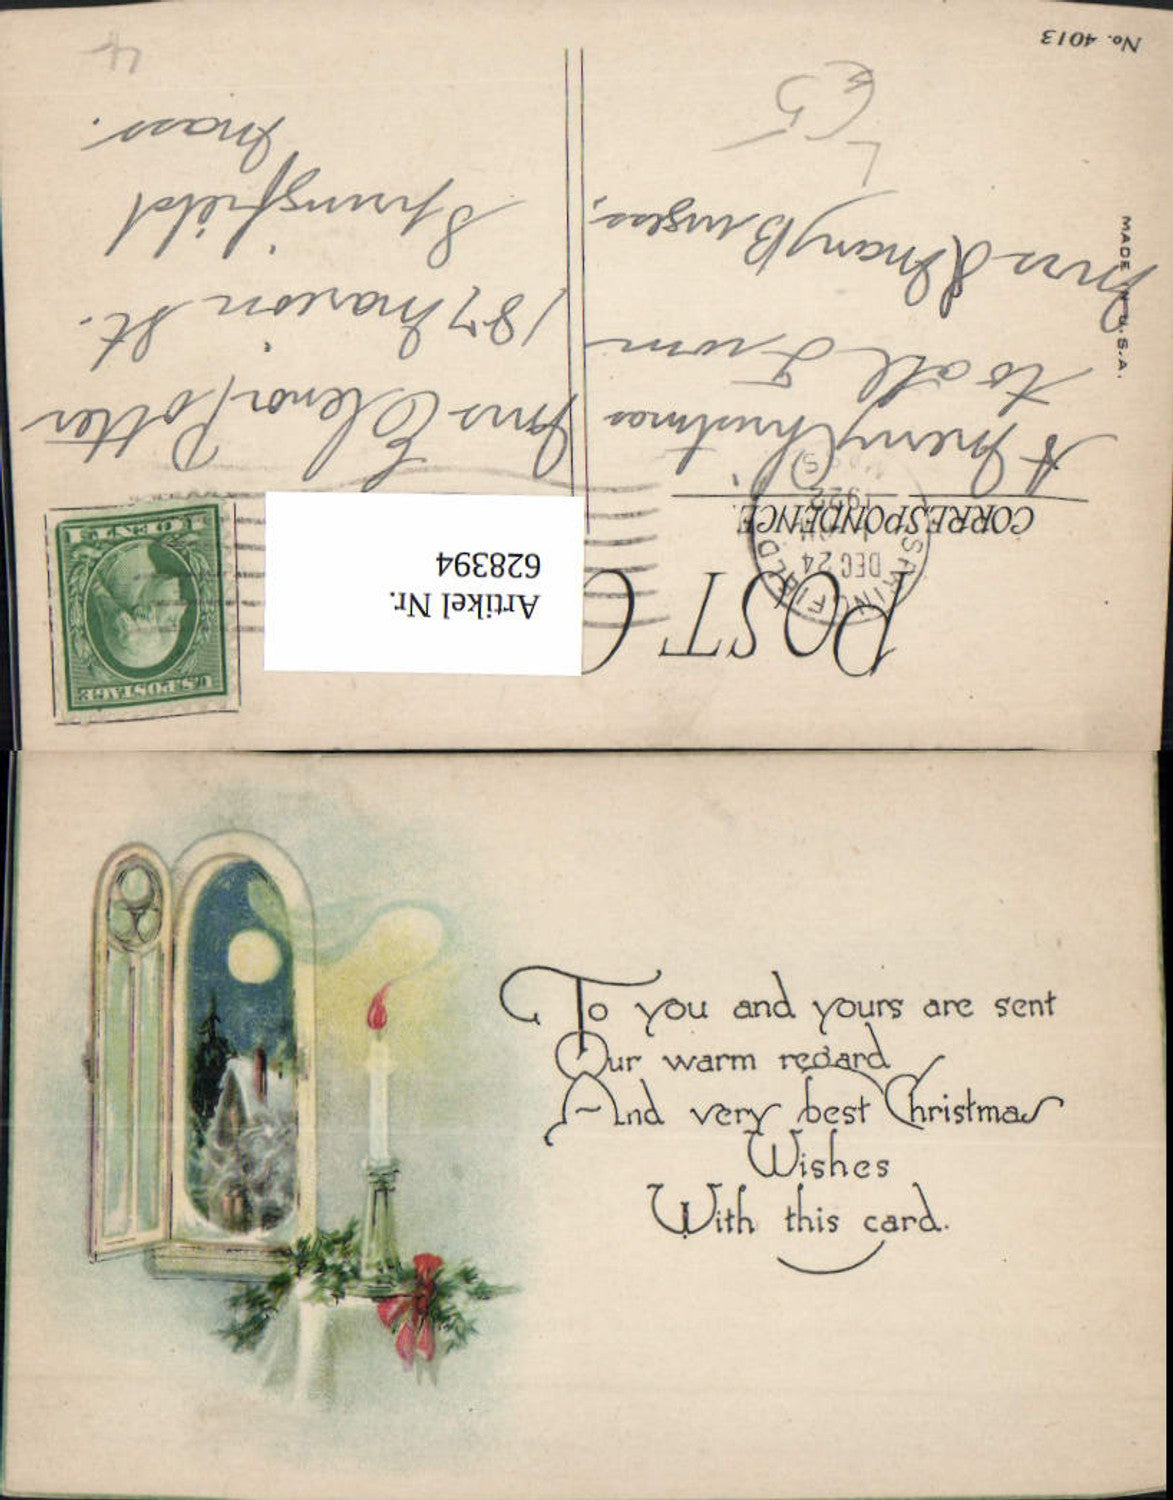 No. 4013
POST C
CORRESPONDENCE
SPRINGFIELD
DEC 24
1922
MASS
Artikel Nr.
628394
U.S. POSTAGE
A Merry Christmas
to all From
Mrs Mary Burgess,
Mrs Elenor Potter
187 Marion St.
Springfield
Mass.
MADE IN U.S.A.
65
4
To you and yours are sent
Our warm regard
And very best Christmas
Wishes
With this card.